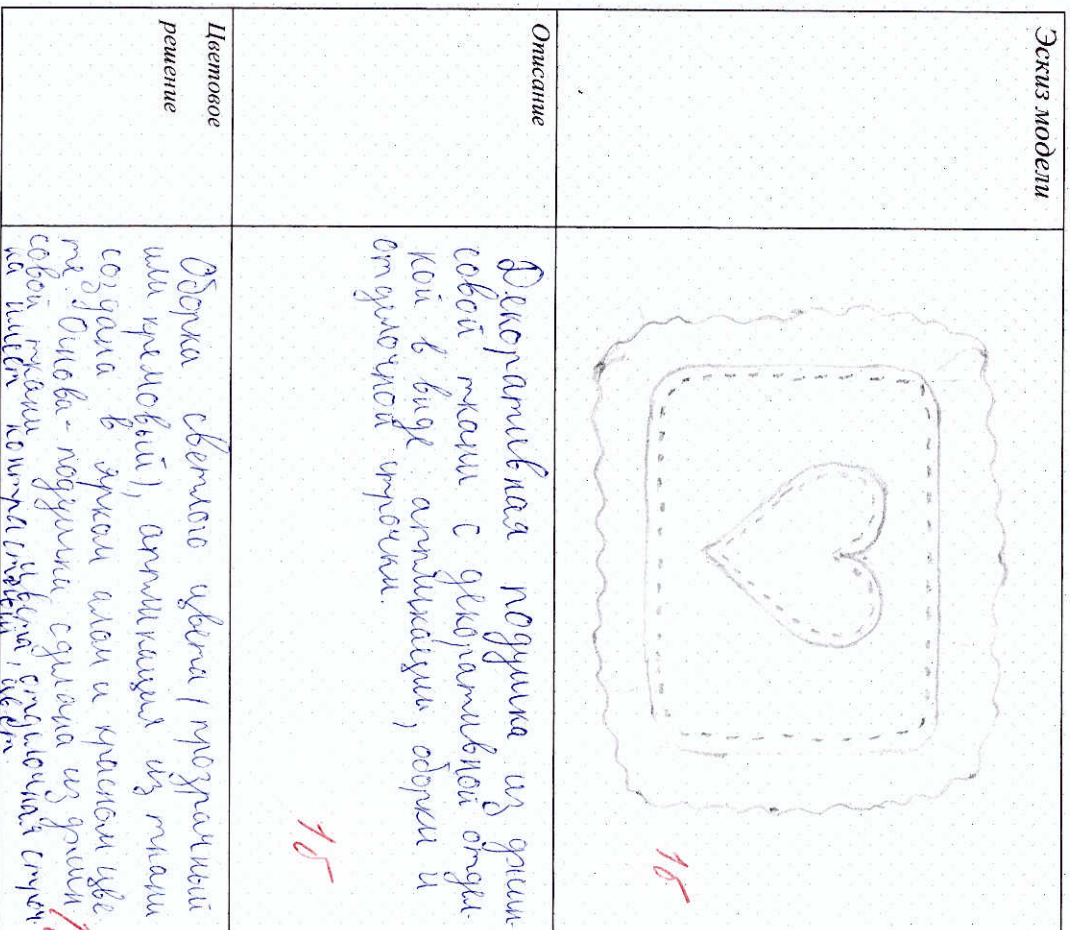 Эскиз модели
1б
Описание
Декоративная подушка из джин-
совой ткани с декоративной отдел-
кой в виде аппликации, оборки и
отделочной строчки.
1б
Цветовое
решение
Оборка светлого цвета (прозрачный
или кремовый), аппликация из ткани
создана в ярком алом и красном цве
те. Основа - подушки сделана из джин
совой ткани цвета, отделочная строч-
ка имеет контрастный цвет.